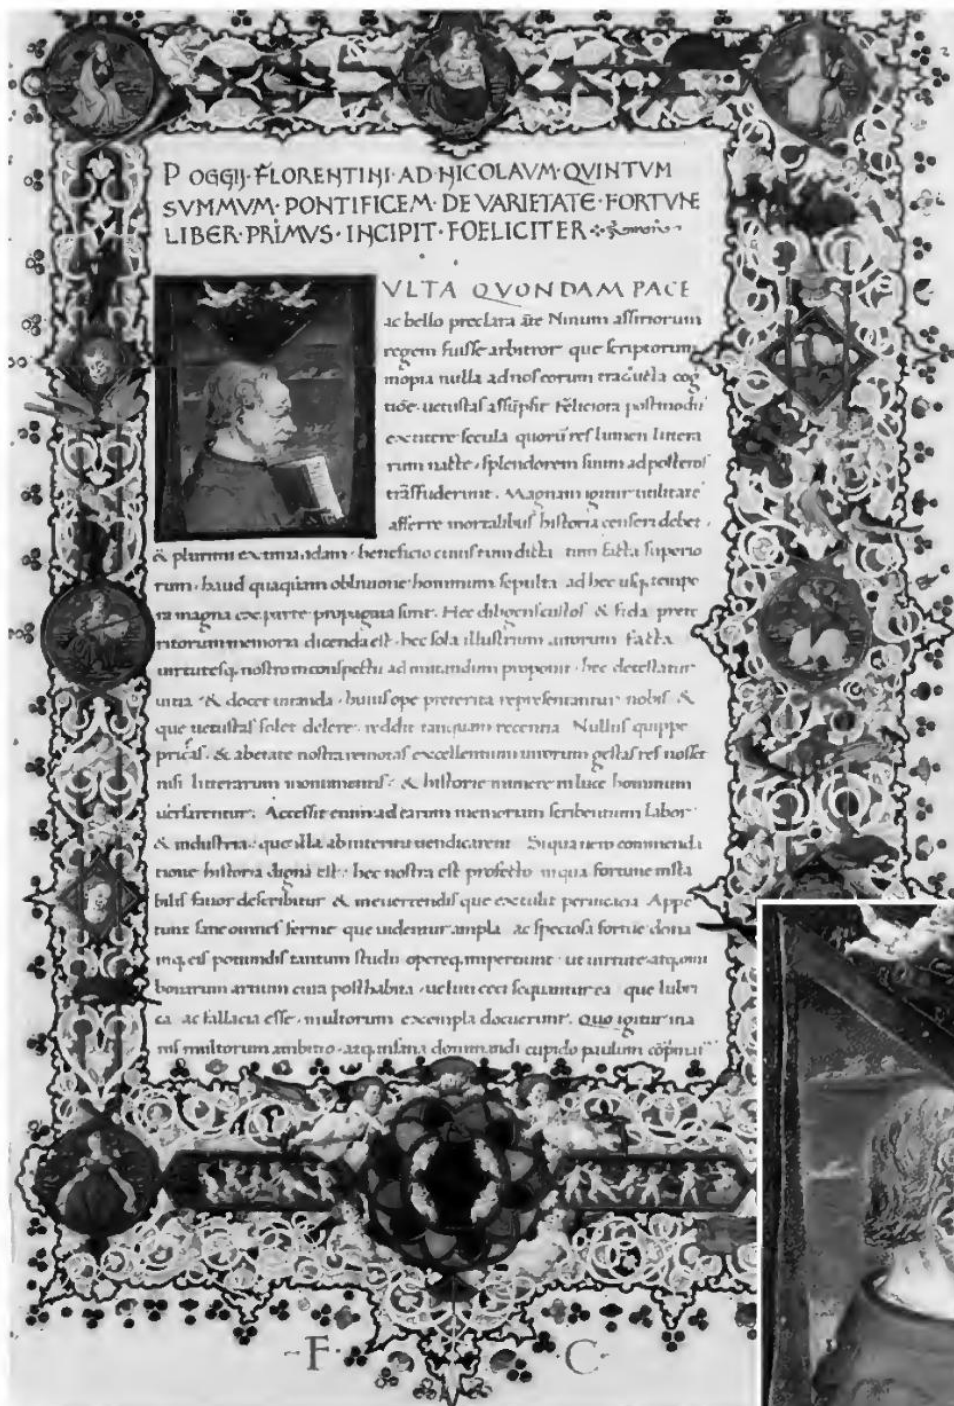 POGGIJ·FLORENTINI·AD·NICOLAVM·QVINTVM
SVMMVM·PONTIFICEM·DE VARIETATE·FORTVNE
LIBER·PRIMVS·INCIPIT·FOELICITER
VLTA QVONDAM PACE
ac bello preclara ãte Ninum assiriorum
regem fuisse arbitror que scriptorum
inopia nulla ad nos eorum traducta cog
tiõe uetustas assũpsit feliciora postmodũ
extitere secula quorũ res lumen littera
rum nacte splendorem suum ad posteros
trãsfuderunt. Magnam igitur utilitatẽ
afferre mortalibus historia censeri debet·
& plurimi existimandam· beneficio cuius tum dicta tum facta superio
rum· haud quaquam obliuione hominum sepulta ad hec usq, tempo
ra magna exe parte propagata sunt. Hec diligens custos & fida prete
ritorum memoria dicenda est· hec sola illustrium uirorum facta
uirtutesq, nostro in conspectu ad imitandum proponit· hec detestatur
uitia & docet uitanda· huius ope preterita representantur nobis &
que uetustas solet delere· reddit tanquam recentia Nullus quippe
priscas· & ab etate nostra remotas excellentium uirorum gestas res nosset
nisi litterarum monumentis· & historie munere in luce hominum
uersarentur. Accessit enim ad earum memoriam scribentium labor
& industria· que illa ab interitu uendicarent Siqua uero commenda
tione historia digna est· hec nostra est profecto in qua fortune insta
bilis fauor describitur & in euertendis que extulit peruicacia Appe
tunt sane omnes ferme que uidentur ampla ac speciosa fortũe dona
inq, eis potiundis tantum studii opereq, impertiunt· ut uirtute atq, omĩ
bonarum artium cura posthabita· ueluti ceci sequantur ea que lubri
ca ac fallacia esse· multorum exempla docuerunt. Quo igitur ina
nis multorum ambitio· atq, insana dominandi cupido paulum
·F· ·C·